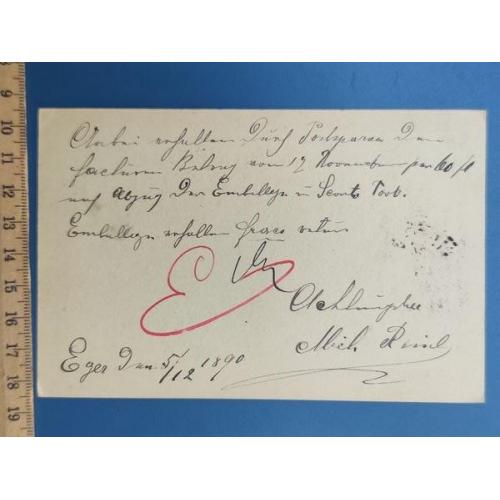 Anbei erhalten Durch Postsparca Den
facturen Betrag vom 17 November per 60
nach abzug Der Emballage u Sconto
Emballage erhalten franco retour
E
Achtungsvoll
Mich
Eger Den 5/12 1890
9
10
11
12
13
14
15
16
17
18
19